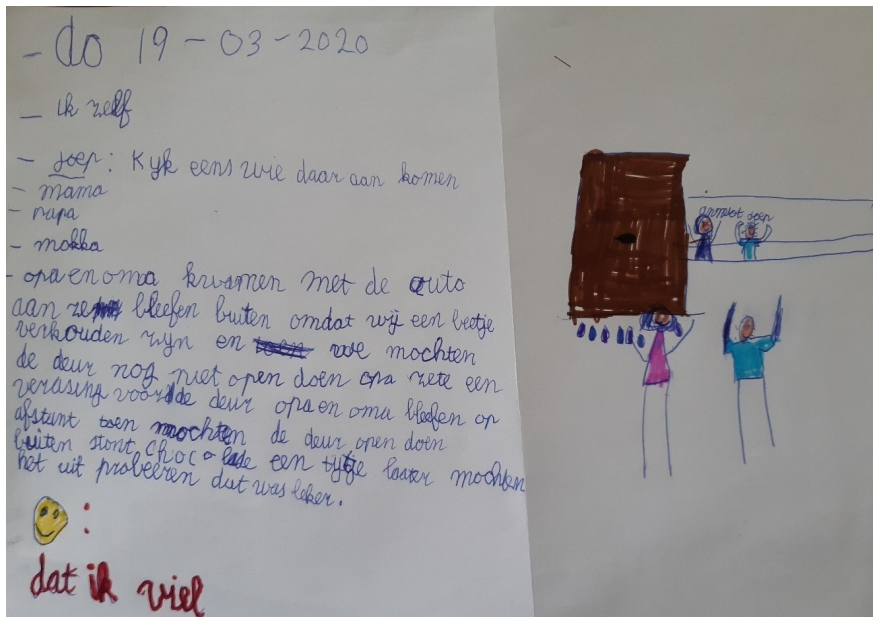 - do 19-03-2020
- ik zelf
- joep: Kyk eens wie daar aan komen
- mama
- papa
- mokka
- opa en oma kwamen met de auto
aan ze bleefen buiten omdat wij een beetje
verkouden zyn en toen we mochten
de deur nog niet open doen opa zete een
verasing voor de deur opa en oma bleefen op
afstant toen mochten de deur open doen
buiten stont choco-lade een tytje laater mochten
het uit probeeren dat was leker.
:
dat ik viel